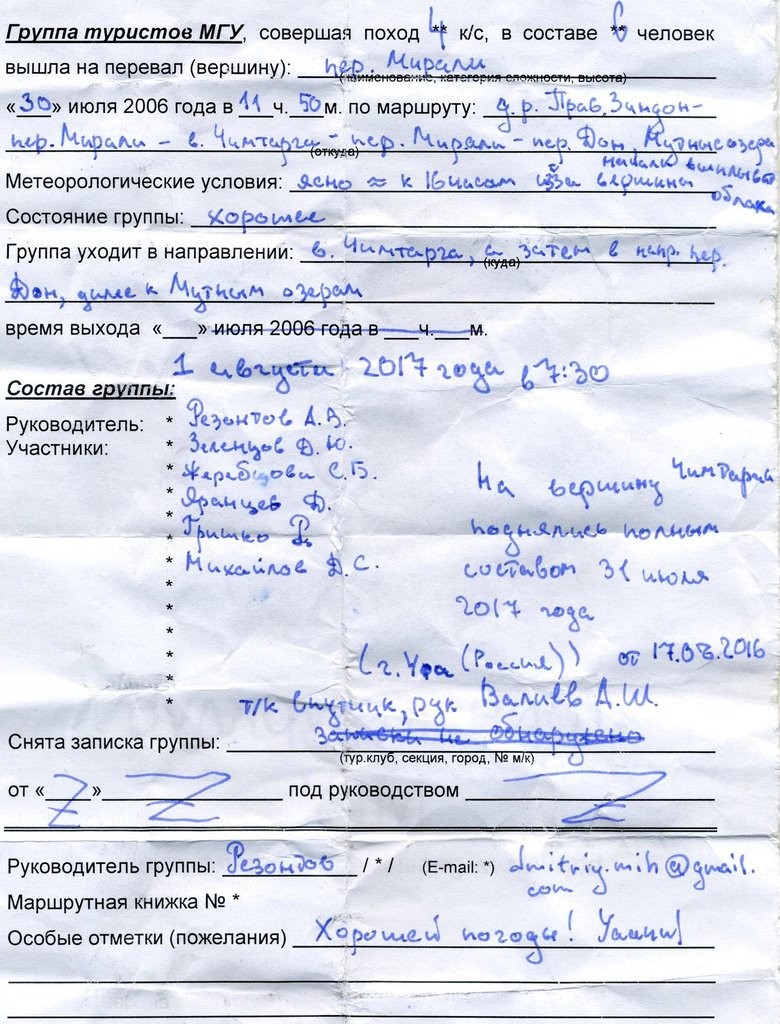 Группа туристов МГУ, совершая поход 4 ** к/с, в составе ** 6 человек
вышла на перевал (вершину): пер. Мирали
(наименование, категория сложности, высота)
«30» июля 2006 года в 11 ч. 50 м. по маршруту: д.р. Прав. Зиндон-
пер. Мирали – в. Чимтарга – пер. Мирали – пер. Дон, Мутные озера
(откуда)
Метеорологические условия: ясно ≈ к 16 часам из-за вершины
начали выплывать
облака
Состояние группы: хорошее
Группа уходит в направлении: в. Чимтарга, а затем в напр. пер.
(куда)
Дон, далее к Мутным озерам
время выхода «___» июля 2006 года в ___ч.___м.
1 августа 2017 года в 7:30
Состав группы:
Руководитель: * Резонтов А.В.
Участники: * Зеленцов Д.Ю.
* Жеребцова С.В.
* Яранцев Д.
* Гришко
* Михайлов Д.С.
*
*
*
*
*
*
На вершину Чимтарга
поднялись полным
составом 31 июля
2017 года
(г. Уфа (Россия)) от 17.08.2016
т/к спутник, рук Валиев А.Ш.
Снята записка группы: записки не обнаружено
(тур.клуб, секция, город, № м/к)
от «Z» Z под руководством Z
Руководитель группы: Резонтов / * / (E-mail: *) dmitriy.mih@gmail.
com
Маршрутная книжка № *
Особые отметки (пожелания) Хорошей погоды! Удачи!